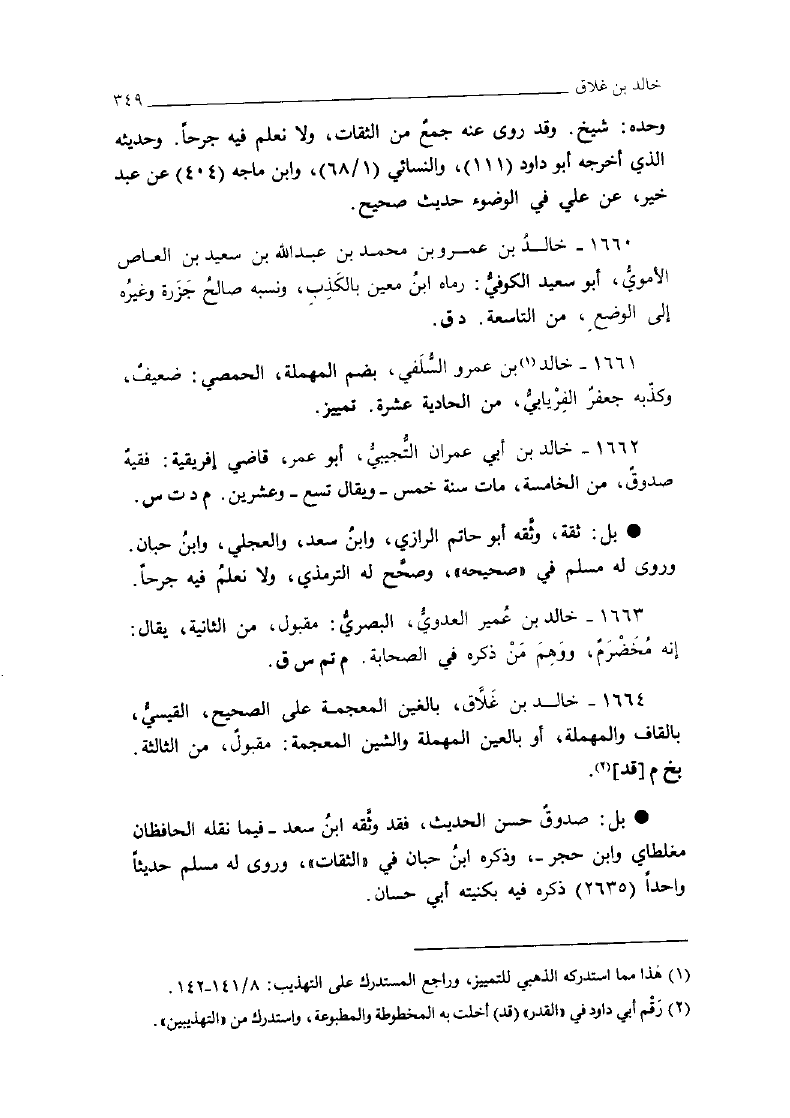 خالد بن غلاق ٣٤٩
وحده: شيخ. وقد روى عنه جمعٌ من الثقات، ولا نعلم فيه جرحاً. وحديثه
الذي أخرجه أبو داود (١١١)، والنسائي (٦٨/١)، وابن ماجه (٤٠٤) عن عبد
خير، عن علي في الوضوء حديث صحيح.
١٦٦٠ - خالـدُ بن عمـرو بن محمـد بن عبـدالله بن سعيد بن العـاص
الأمويُّ، أبو سعيد الكوفيُّ: رماه ابنُ معين بالكَذِبِ، ونسبه صالحُ جَزَرة وغيرُه
إلى الوضعِ، من التاسعة. د ق.
١٦٦١ - خالد(١) بن عمرو السُّلَفي، بضم المهملة، الحمصي: ضعيفٌ،
وكذّبه جعفرٌ الفِرْيابيُّ، من الحادية عشرة. تمييز.
١٦٦٢ - خالد بن أبي عمران التُّجيبيُّ، أبو عمر، قاضي إفريقية: فقيهٌ
صدوقٌ، من الخامسة، مات سنة خمس - ويقال تسع - وعشرين. م د ت س.
● بل: ثقة، وثَّقه أبو حاتم الرازي، وابنُ سعد، والعجلي، وابنُ حبان.
وروى له مسلم في «صحيحه»، وصحَّح له الترمذي، ولا نعلمُ فيه جرحاً.
١٦٦٣ - خالد بن عُمير العدويُّ، البصريُّ: مقبول، من الثانية، يقال:
إنه مُخَضْرَمٌ، ووَهِمَ مَنْ ذكره في الصحابة. م تم س ق.
١٦٦٤ - خالـد بن غَلَّاق، بالغين المعجمـة على الصحيح، القيسيُّ،
بالقاف والمهملة، أو بالعين المهملة والشين المعجمة: مقبولٌ، من الثالثة.
بخ م [قد](٢).
● بل: صدوقٌ حسن الحديث، فقد وثَّقه ابنُ سعد - فيما نقله الحافظان
مغلطاي وابن حجر -، وذكره ابنُ حبان في «الثقات»، وروى له مسلم حديثاً
واحداً (٢٦٣٥) ذكره فيه بكنيته أبي حسان.
(١) هٰذا مما استدركه الذهبي للتمييز، وراجع المستدرك على التهذيب: ١٤١/٨-١٤٢.
(٢) رَقْم أبي داود في «القدر» (قد) أخلت به المخطوطة والمطبوعة، واستدرك من «التهذيبين».